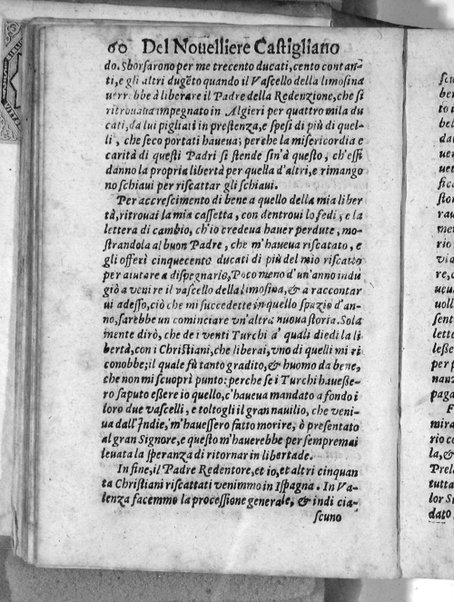 60 Del Nouelliere Castigliano
do. Sborsarono per me trecento ducati, cento contan-
ti, e gli altri dugẽto quando il Vascello della limosina
uerrebbe à liberare il Padre della Redenzione, che si
ritrouaua impegnato in Algieri per quattro mila du
cati, da lui pigliati in prestenza, e spesi di più di quel-
li, che seco portati haueua; perche la misericordia e
carità di questi Padri si stende sin'à questo, ch'essi
danno la propria libertà per quella d'altri, e rimango
no schiaui per riscattar gli schiaui.
Per accrescimento di bene a quello della mia liber
tà, ritrouai la mia cassetta, con dentroui lo fedi, e la
lettera di cambio, ch'io credeua hauer perdute, mo-
strandola al buon Padre, che m'haueua riscatato, e
gli offerì cinquecento ducati di più del mio riscatto
per aiutare a dispegnarlo, Poco meno d'un'anno indu
giò a uenire il vascello della limosina, & a raccontar
ui adesso, ciò che mi succedette in quello spazio d'an-
no, sarebbe un cominciare vn'altra nuoua storia. Sola
mente dirò, che de i venti Turchi a' quali diedi la li
bertà, con i Christiani, che liberai, vno di quelli mi ri
conobbe; il quale fù tanto gradito, & huomo da bene,
che non mi scuoprì punto: perche se i Turchi hauesse-
ro saputo essere io quello, c'haueua mandato a fondo i
loro due vascelli, e toltogli il gran nauilio, che veni-
ua dall'Indie, m'hauessero fatto morire, ò presentato
al gran Signore, e questo m'hauerebbe per sempremai
leuata la speranza di ritornar in libertade.
In fine, il Padre Redentore, et io, et altri cinquan
ta Christiani riscattati venimmo in Ispagna. In Va-
lenza facemmo la processione generale, & indi cia-
scuno